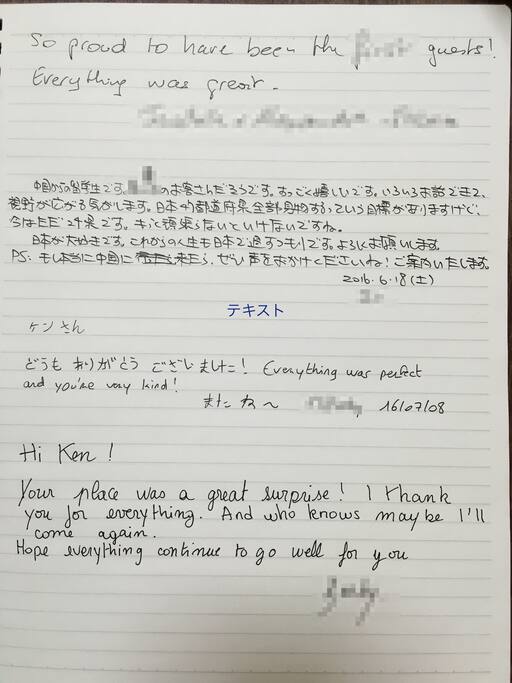 So proud to have been the guests!
Everything was great.
中国からの留学生です。のお客さんだろうです。すっごく嬉しいです。いろいろお話できて、
視野が広がる気がします。日本の都道府県全部見物するっていう目標がありますけど、
今はただ24県です。もっと頑張らないといけないですね。
日本が大好きです。これからの人生も日本で過すつもりです。よろしくお願いします。
PS: もし中国に来たら、ぜひ声をおかけくださいね！ご案内いたします。
2016.6.18(土)
テキスト
ケンさん
どうも ありがとう ございました！ Everything was perfect
and you're very kind!
またね〜 16/07/08
Hi Ken!
Your place was a great surprise! I thank
you for everything. And who knows maybe I'll
come again.
Hope everything continue to go well for you